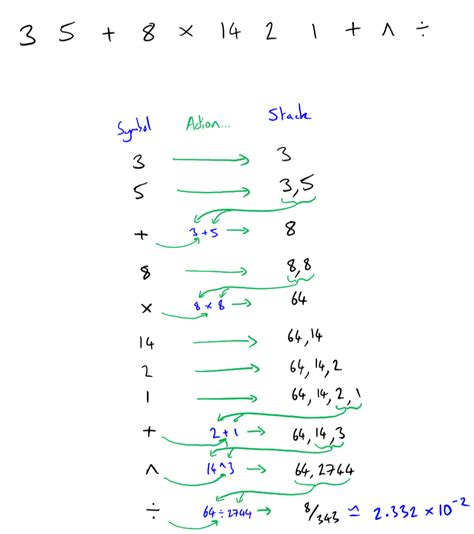 3 5 + 8 × 14 2 1 + ^ ÷
Symbol Action... Stack
3 3
5 3,5
+ 3+5 8
8 8,8
× 8×8 64
14 64,14
2 64,14,2
1 64,14,2,1
+ 2+1 64,14,3
^ 14^3 64,2744
÷ 64÷2744 8/343 ≃ 2.332 × 10^-2